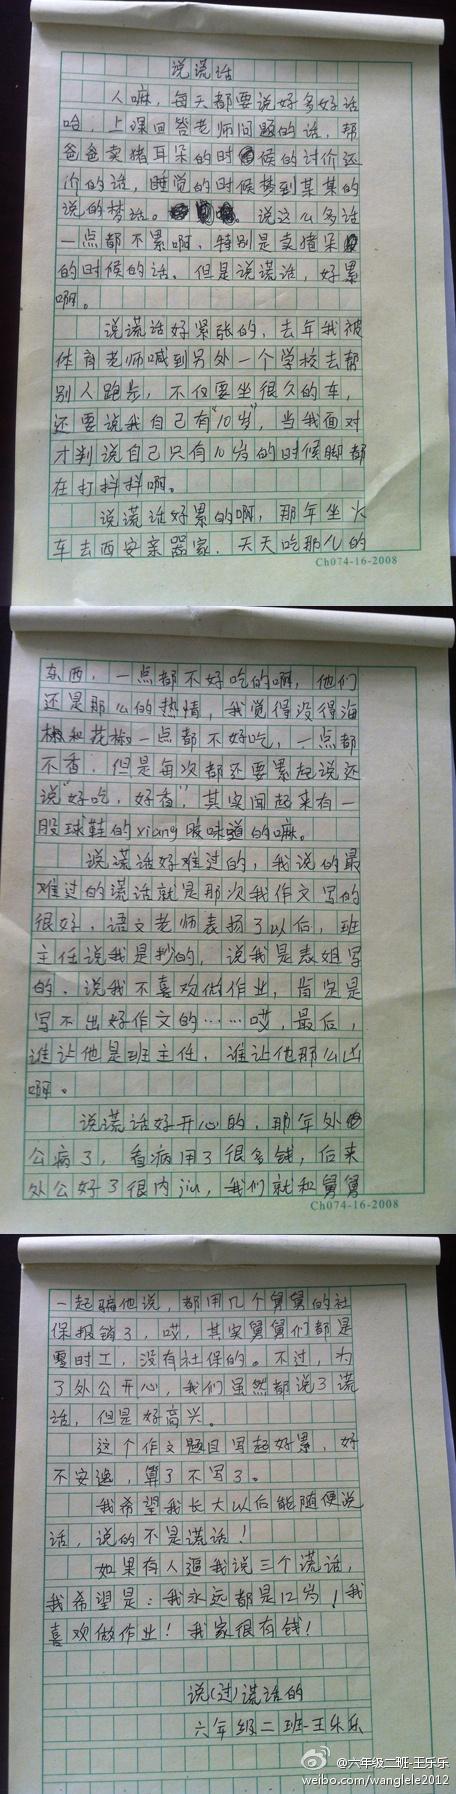 说谎话
人嘛，每天都要说好多好话
哈，上课回答老师问题的话，帮
爸爸卖猪耳朵的时候的讨价还
价的话，睡觉的时候梦到某某的
说的梦话。说这么多话
一点都不累啊，特别是卖猪朵
的时候的话，但是说谎话，好累
啊。
说谎话好紧张的，去年我被
体育老师喊到另外一个学校去帮
别人跑步，不仅要坐很久的车，
还要说我自己有“10岁”，当我面对
才判说自己只有10岁的时候脚都
在打抖抖啊。
说谎话好累的啊，那年坐火
车去西安亲器家，天天吃那儿的
Ch074-16-2008
东西，一点都不好吃的啊，他们
还是那么的热情，我觉得没得海
椒和花椒一点都不好吃，一点都
不香，但是每次都还要累起说还
说“好吃，好香”，其实闻起来有一
股球鞋的xiang胶味道的嘛。
说谎话好难过的，我说的最
难过的谎话就是那次我作文写的
很好，语文老师表扬了以后，班
主任说我是抄的，说我是表姐写
的，说我不喜欢做作业，肯定是
写不出好作文的……哎，最后，
谁让他是班主任，谁让他那么凶
啊。
说谎话好开心的，那年外
公病了，看病用了很多钱，后来
外公好了很内jiu，我们就和舅舅
Ch074-16-2008
一起骗他说，都用几个舅舅的社
保报销了，哎，其实舅舅们都是
零时工，没有社保的。不过，为
了外公开心，我们虽然都说了谎
话，但是好高兴。
这个作文题目写起好累，好
不安逸，算了不写了。
我希望我长大以后能随便说
话，说的不是谎话！
如果有人逼我说三个谎话，
我希望是：我永远都是12岁！我
喜欢做作业！我家很有钱！
说(过)谎话的
六年级二班-王乐乐
@六年级二班-王乐乐
weibo.com/wanglele2012